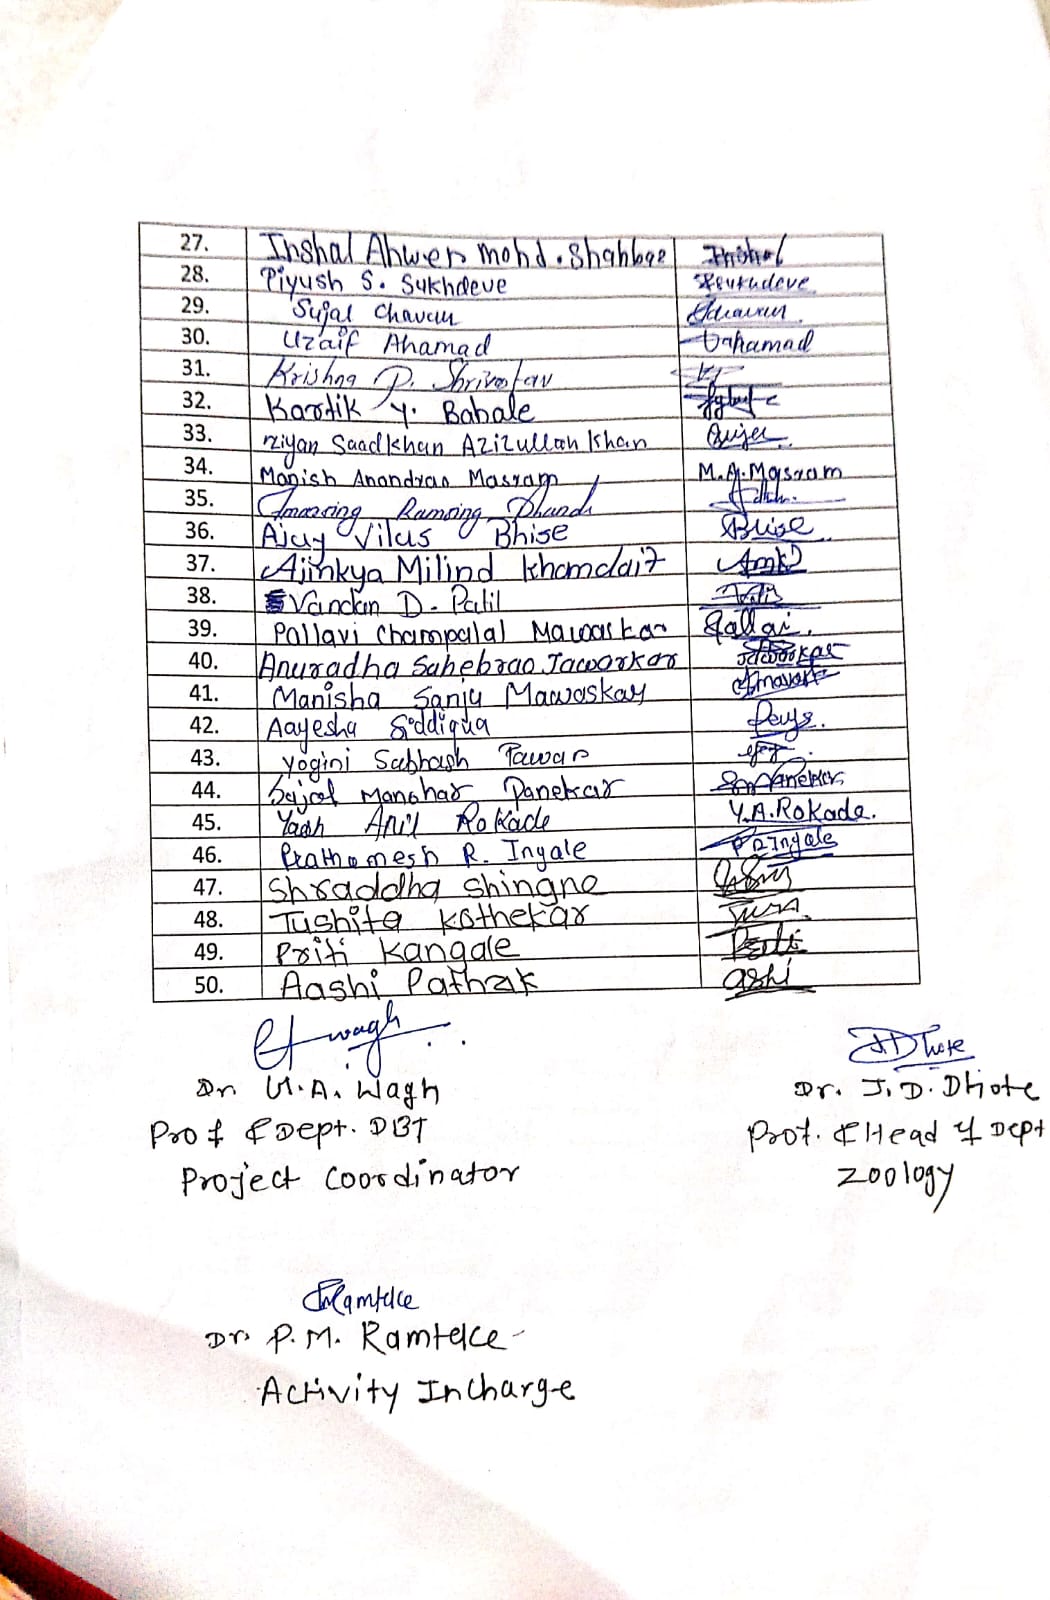 27. Inshal Ahwer mohd. Shahbaz Inshal
28. Piyush S. Sukhdeve Psukhdeve
29. Sujal Chavan
30. Uzaif Ahamad Uahamad
31. Krishna P. Shrivastav
32. Kartik Y. Babale
33. Saad Khan Azizullah Khan
34. Manish Anandrao Masram M.A.Masram
35. Ramsing
36. Ajay Vilas Bhise Bhise
37. Ajinkya Milind Khandait
38. Vandan D. Patil
39. Pallavi Champalal Mawaskar Pallavi.
40. Anuradha Sahebrao Jaworkar Jaworkar
41. Manisha Sanju Mawaskay
42. Aayesha Siddiqua
43. Yogini Subhash Pawar
44. Sajal Manohar Panekar
45. Yash Anil Rokade Y.A.Rokade.
46. Prathamesh R. Ingale P R Ingale
47. Shraddha Shingne
48. Tushita Kathekar
49. Priti Kangale Priti
50. Aashi Pathak ashi
wagh JDDhote
Dr. U.A. Wagh Dr. J.D. Dhote
Prof & Dept. DBT Prof. & Head of Dept
Project Coordinator Zoology
Ramteke
Dr. P.M. Ramteke
Activity Incharge